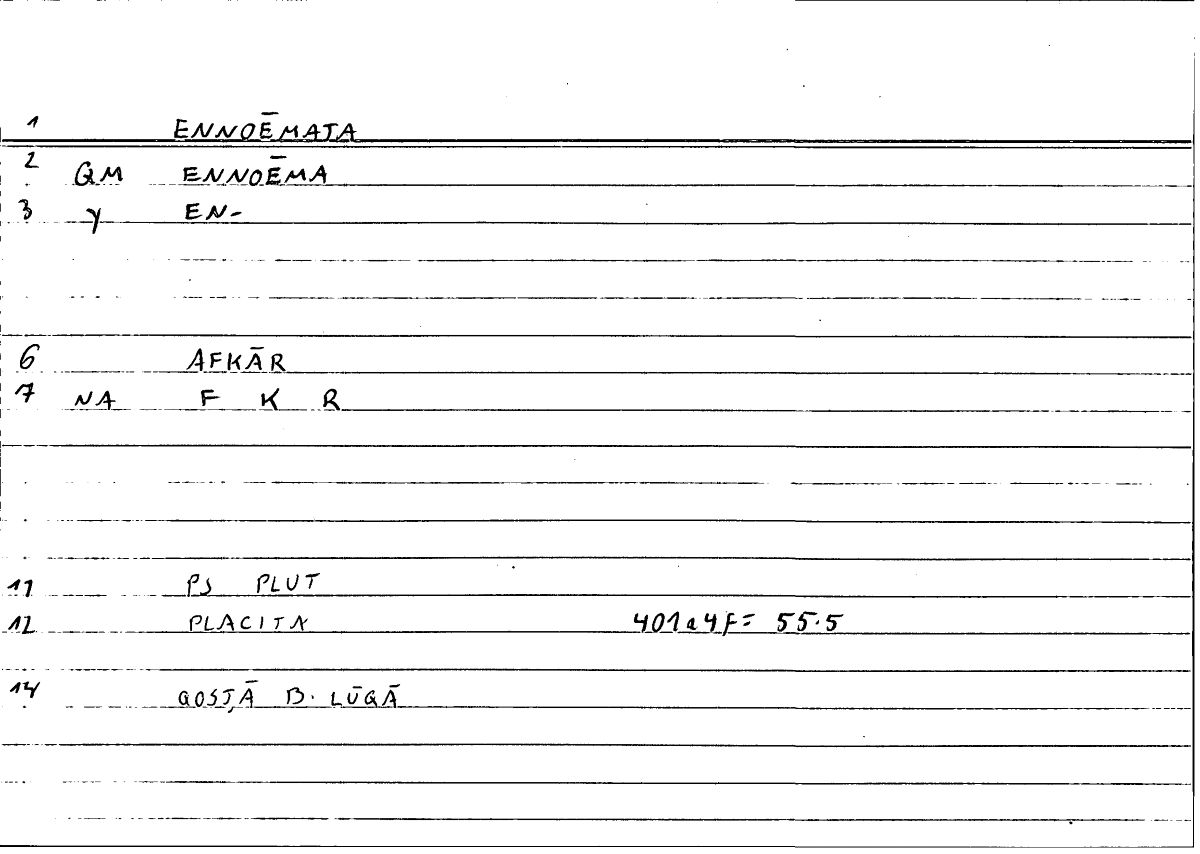 1 ENNOĒMATA
2 QM ENNOĒMA
3 γ EN-
6 AFKĀR
7 NA F K R
11 PS PLUT
12 PLACITA 401a4f= 55.5
14 QOSṬĀ B. LŪQĀ